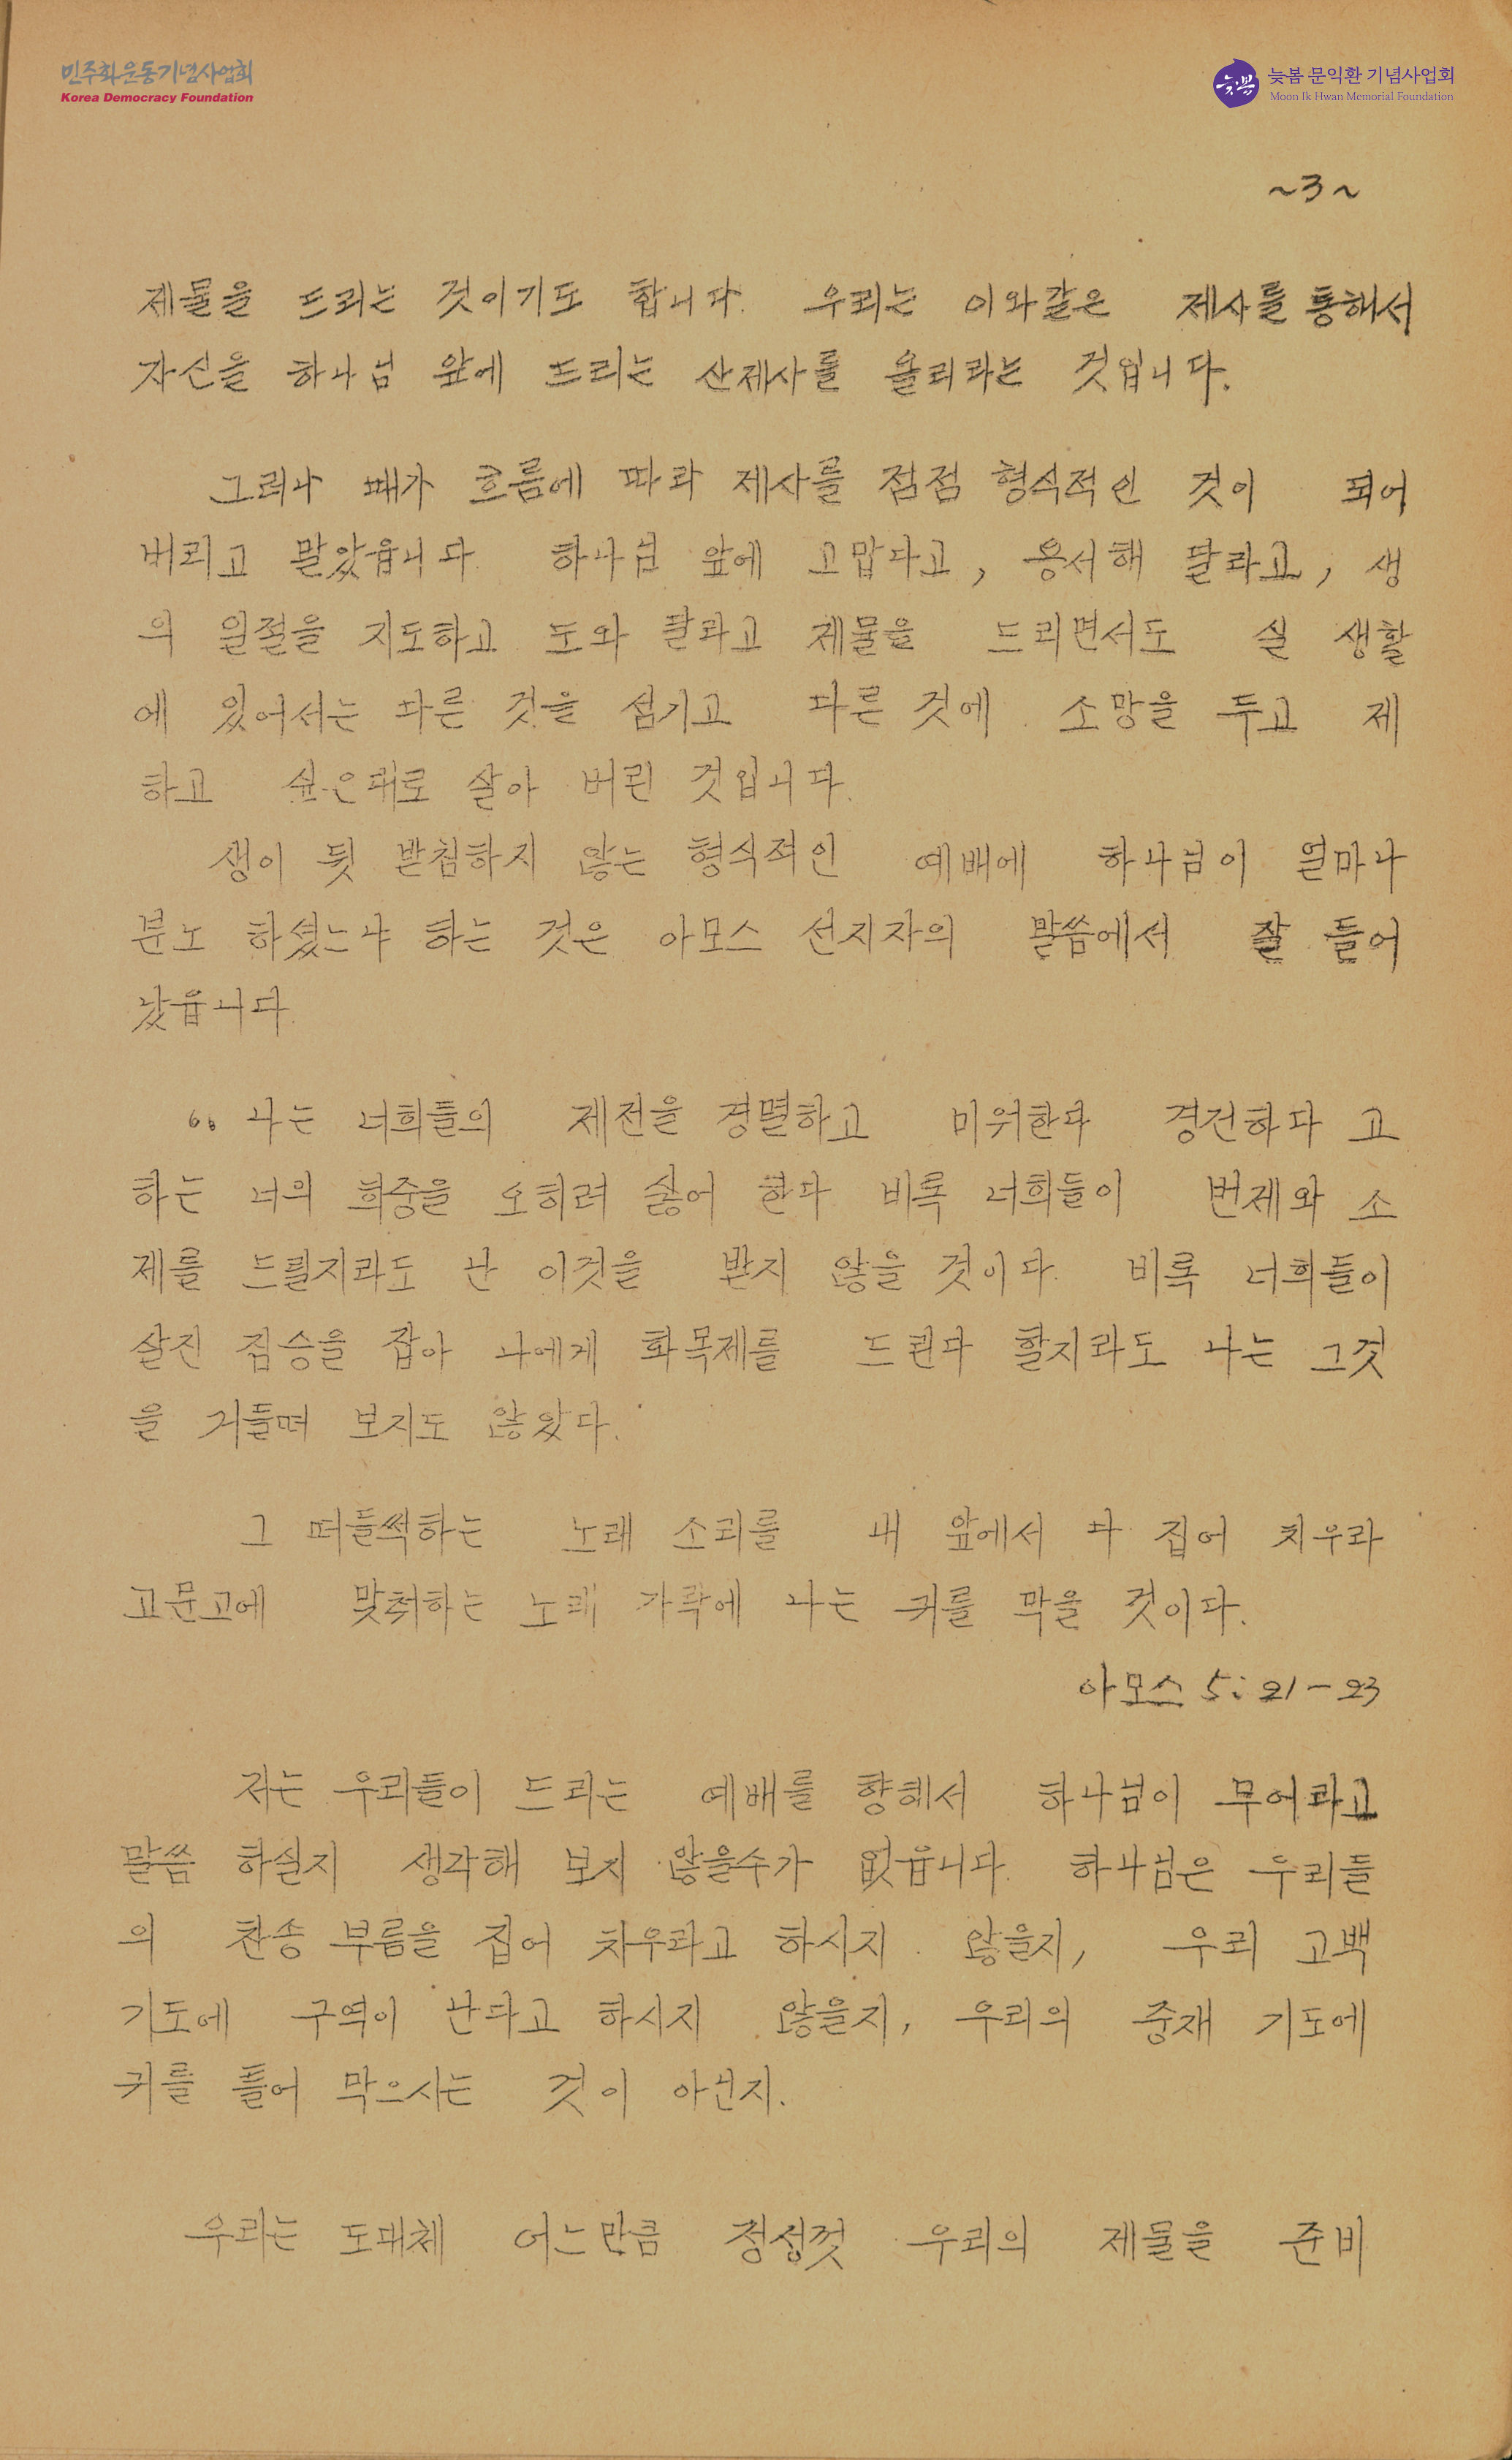 민주화운동기념사업회
Korea Democracy Foundation
늦봄
늦봄 문익환 기념사업회
Moon Ik Hwan Memorial Foundation
~3~
제물을 드리는 것이기도 합니다. 우리는 이와같은 제사를 통해서
자신을 하나님 앞에 드리는 산제사를 올리라는 것입니다.
그러나 때가 흐름에 따라 제사를 점점 형식적인 것이 되어
버리고 말았읍니다 하나님 앞에 고맙다고, 용서해 달라고, 생
의 일절을 지도하고 도와 달라고 제물을 드리면서도 실 생활
에 있어서는 다른 것을 섬기고 다른 것에 소망을 두고 제
하고 싶은대로 살아 버린 것입니다.
생이 뒷 받침하지 않는 형식적인 예배에 하나님이 얼마나
분노 하셨느냐 하는 것은 아모스 선지자의 말씀에서 잘 들어
났읍니다.
“ 나는 너희들의 제전을 경멸하고 미워한다 경건하다 고
하는 너의 회중을 오히려 싫어 한다 비록 너희들이 번제와 소
제를 드릴지라도 난 이것을 받지 않을 것이다. 비록 너희들이
살진 짐승을 잡아 나에게 화목제를 드린다 할지라도 나는 그것
을 거들떠 보지도 않았다.
그 떠들썩하는 노래 소리를 내 앞에서 다 집어 치우라
고문고에 맞춰하는 노래 가락에 나는 귀를 막을 것이다.
아모스 5: 21-23
저는 우리들이 드리는 예배를 향해서 하나님이 무어라고
말씀 하실지 생각해 보지 않을수가 없읍니다. 하나님은 우리들
의 찬송 부름을 집어 치우라고 하시지 않을지, 우리 고백
기도에 구역이 난다고 하시지 않을지, 우리의 중재 기도에
귀를 틀어 막으시는 것이 아닌지.
우리는 도대체 어느만큼 정성껏 우리의 제물을 준비